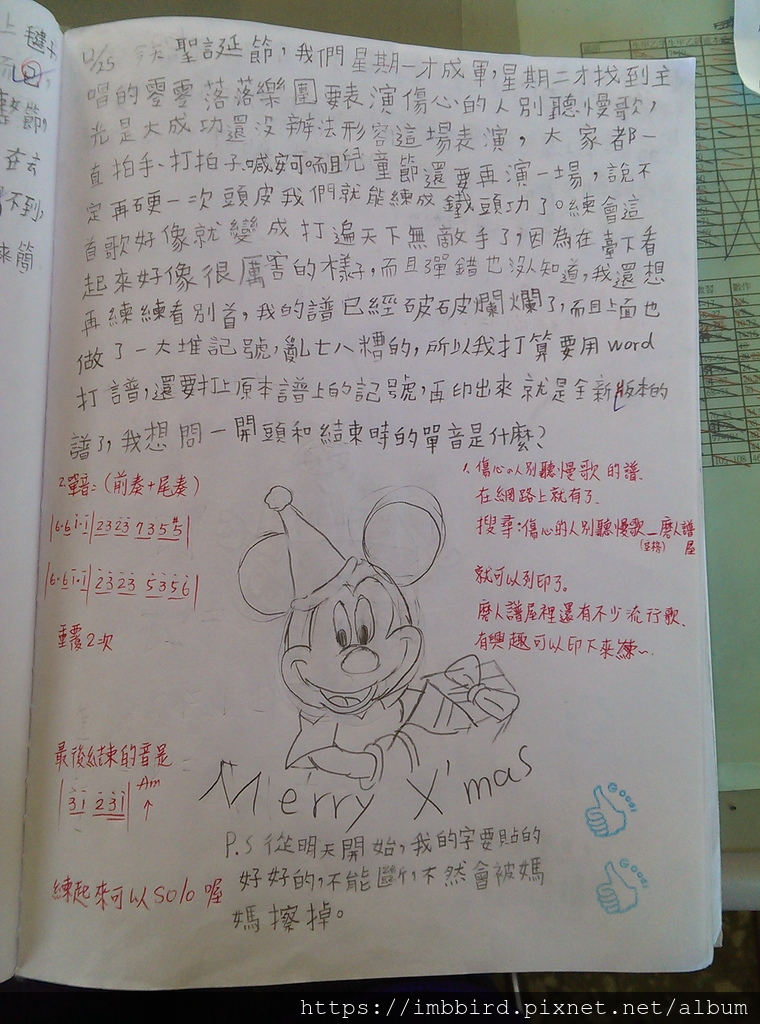 12/25 今天聖誕節，我們星期一才成軍，星期二才找到主
唱的零零落落樂團要表演傷心的人別聽慢歌，
光是大成功還沒辦法形容這場表演，大家都一
直拍手、打拍子、喊安可。而且兒童節還要再演一場，說不
定再硬一次頭皮我們就能練成鐵頭功了。練會這
首歌好像就變成打遍天下無敵手了，因為在臺下看
起來好像很厲害的樣子，而且彈錯也沒人知道，我還想
再練練看別首，我的譜已經破破爛爛了，而且上面也
做了一大堆記號，亂七八糟的，所以我打算要用word
打譜，還要打上原本譜上的記號，再印出來就是全新版本的
譜了，我想問一開頭和結束時的單音是什麼？
1. 傷心的人別聽慢歌 的譜
在網路上就有了
搜尋：傷心的人別聽慢歌_磨人譜屋
(空格)
就可以列印了。
磨人譜屋裡還有不少流行歌、
有興趣可以印下來練~
2. 單音：(前奏+尾奏)
|6·6 i·i|2323 7355|
|6·6 i·i|2323 5356|
重覆2次
最後結束的音是
|31 231| Am
↑
練起來可以solo喔
Merry X'mas
P.S 從明天開始，我的字要貼的
好好的，不能斷，不然會被媽
媽擦掉。
GOOD!
GOOD!
https://imbbird.pixnet.net/album